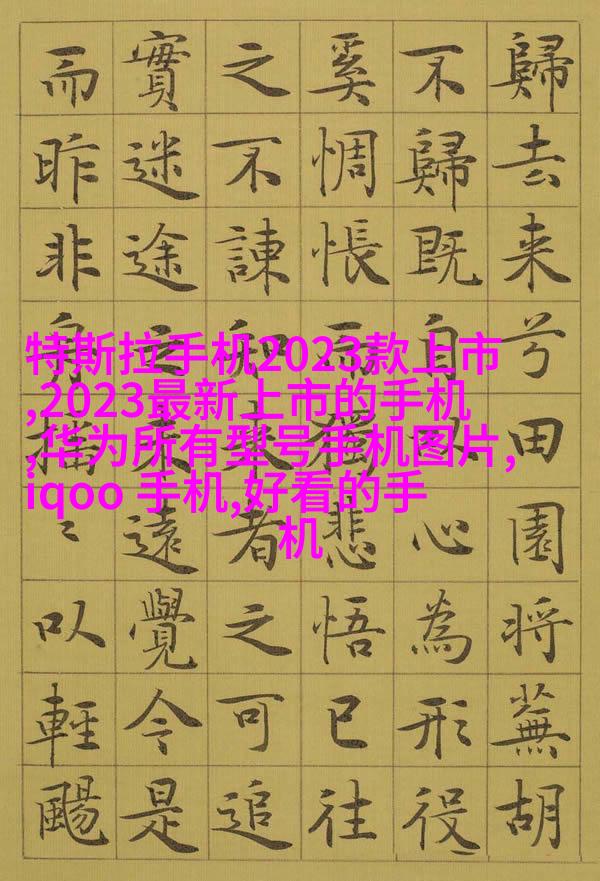 歸去来兮田園将蕪胡
不歸既自以心為形役
奚惆悵而獨悲悟已往
之不諫知来者之可追
實迷途未遠覺今是
而昨非舟摇〻以輕颺
特斯拉手机2023款上市
,2023最新上市的手机
,华为所有型号手机图片,
iqoo 手机,好看的手
机